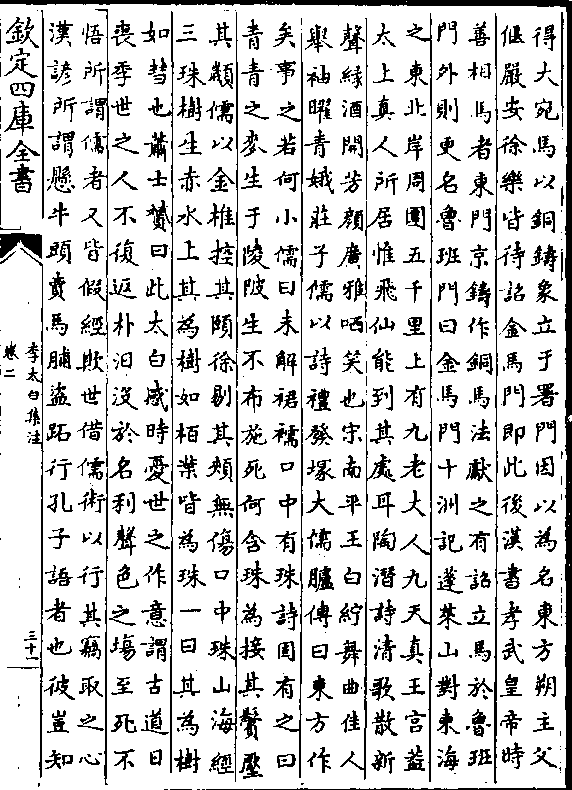 得大宛馬以銅鑄象立于署門因以為名東方朔主父
偃嚴安徐樂皆待詔金馬門即此後漢書孝武皇帝時
善相馬者東門京鑄作銅馬法獻之有詔立馬於魯班
門外則更名魯班門曰金馬門十洲記蓬萊山對東海
之東北岸周圍五千里上有九老丈人九天真王宫蓋
太上真人所居惟飛仙能到其處耳陶潛詩清歌散新
聲緑酒開芳顔廣雅哂笑也宋南平王白紵舞曲佳人
舉袖曜青娥莊子儒以詩禮發塚大儒臚傳曰東方作
矣事之若何小儒曰未解裙襦口中有珠詩固有之曰
青青之麥生于陵陂生不布施死何含珠為接其鬢壓
其顪儒以金椎控其頤徐别其頰無傷口中珠山海經
三珠樹生赤水上其為樹如栢葉皆為珠一曰其為樹
如彗也蕭士贇曰此太白感時憂世之作意謂古道日
喪季世之人不復返朴汩没於名利聲色之場至死不
悟所謂儒者又皆假經欺世借儒術以行其竊取之心
漢諺所謂懸牛頭賣馬脯盜跖行孔子語者也彼豈知
欽定四庫全書
李太白集注
卷二
三十一